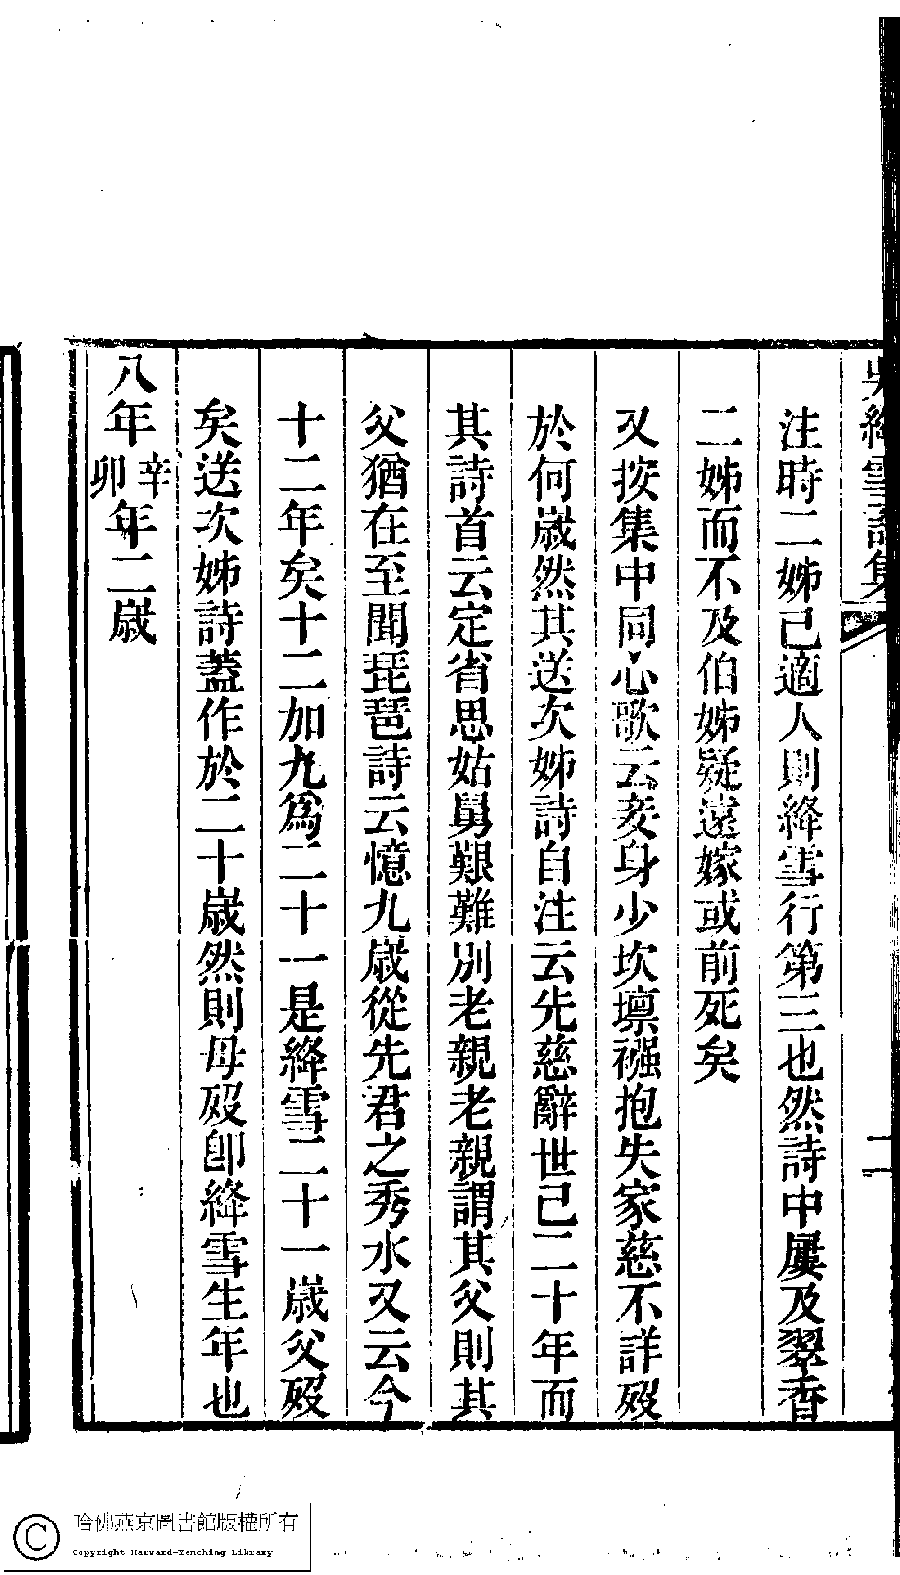 吳絳雪詩集
二
注時二姊己適人則絳雪行第三也然詩中屢及翠香
二姊而不及伯姊疑遠嫁或前死矣
又按集中同心歌云妾身少坎壈襁抱失家慈不詳歿
於何歲然其送次姊詩自注云先慈辭世已二十年而
其詩首云定省思姑舅艱難別老親老親謂其父則其
父猶在至聞琵琶詩云憶九歲從先君之秀水又云今
十二年矣十二加九爲二十一是絳雪二十一歲父歿
矣送次姊詩蓋作於二十歲然則母歿卽絳雪生年也
八年辛卯年二歲
哈佛燕京圖書館版權所有
Copyright Harvard-Yenching Library